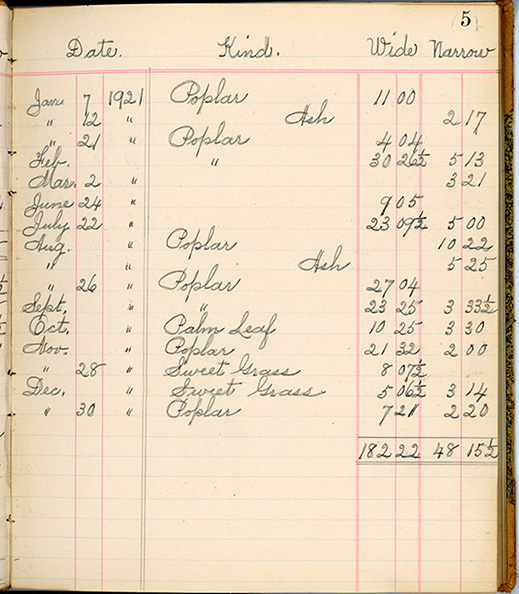 5
Date. Kind. Wide Narrow
Jan. 7 1921 Poplar 11 00
" 12 " Ash 2 17
" 21 " Poplar 4 04
Feb. " " 30 26½ 5 13
Mar. 2 " 3 21
June 24 " 9 05
July 22 " 23 09½ 5 00
Aug. " Poplar 10 22
" " Ash 5 25
" 26 " Poplar 27 04
Sept. " " 23 25 3 33½
Oct. " Palm Leaf 10 25 3 30
Nov. " Poplar 21 32 2 00
" 28 " Sweet Grass 8 07½
Dec. " Sweet Grass 5 06½ 3 14
" 30 " Poplar 7 21 2 20
182 22 48 15½